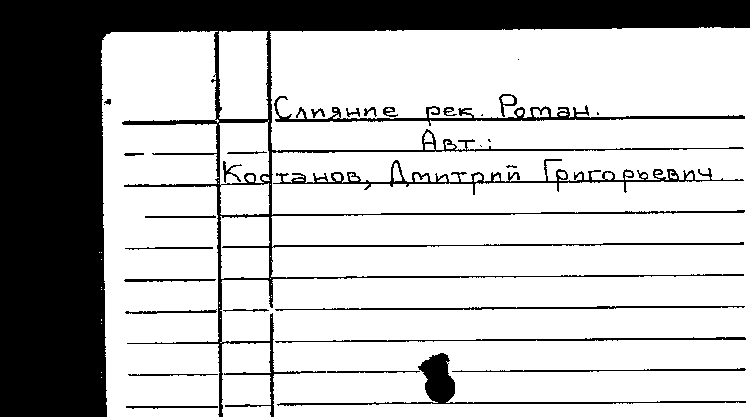 Слияние рек. Роман.
Авт.:
Костанов, Дмитрий Григорьевич.